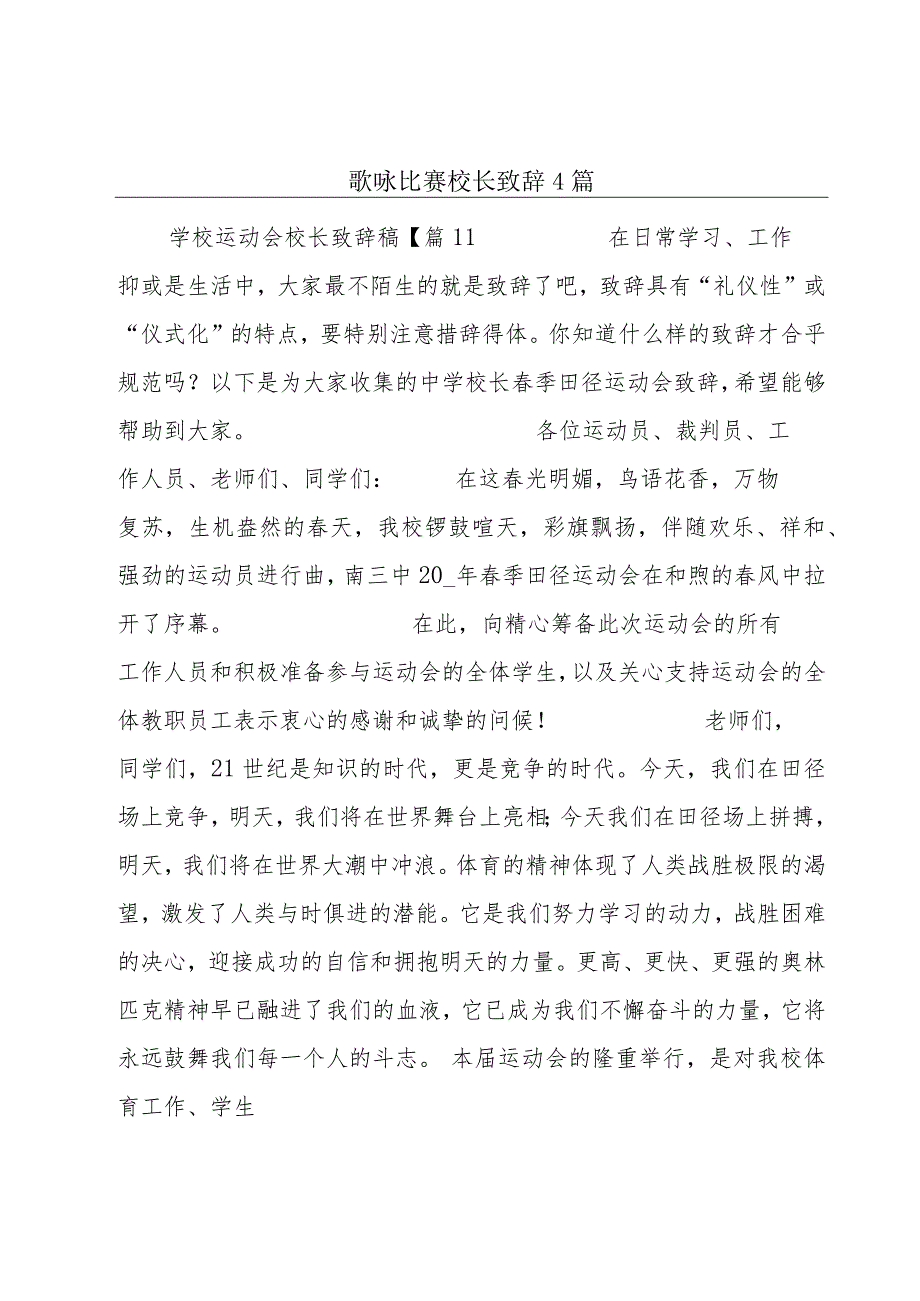 歌咏比赛校长致辞 4 篇
学校运动会校长致辞稿【篇 11 在日常学习、工作
抑或是生活中，大家最不陌生的就是致辞了吧，致辞具有“礼仪性”或
“仪式化”的特点，要特别注意措辞得体。你知道什么样的致辞才合乎
规范吗？以下是为大家收集的中学校长春季田径运动会致辞，希望能够
帮助到大家。 各位运动员、裁判员、工
作人员、老师们、同学们： 在这春光明媚，鸟语花香，万物
复苏，生机盎然的春天，我校锣鼓喧天，彩旗飘扬，伴随欢乐、祥和、
强劲的运动员进行曲，南三中 20_年春季田径运动会在和煦的春风中拉
开了序幕。 在此，向精心筹备此次运动会的所有
工作人员和积极准备参与运动会的全体学生，以及关心支持运动会的全
体教职员工表示衷心的感谢和诚挚的问候！ 老师们，
同学们，21 世纪是知识的时代，更是竞争的时代。今天，我们在田径
场上竞争，明天，我们将在世界舞台上亮相；今天我们在田径场上拼搏，
明天，我们将在世界大潮中冲浪。体育的精神体现了人类战胜极限的渴
望，激发了人类与时俱进的潜能。它是我们努力学习的动力，战胜困难
的决心，迎接成功的自信和拥抱明天的力量。更高、更快、更强的奥林
匹克精神早已融进了我们的血液，它已成为我们不懈奋斗的力量，它将
永远鼓舞我们每一个人的斗志。 本届运动会的隆重举行，是对我校体
育工作、学生